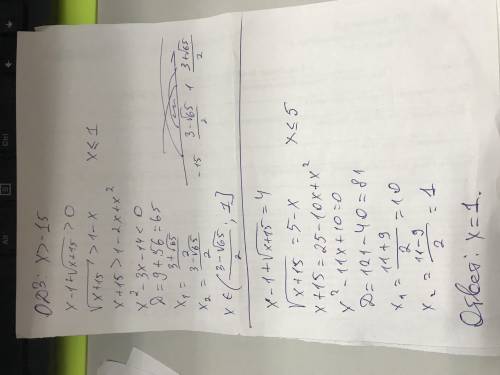 ОДЗ: x > -15
x-1+√x+15 > 0
√x+15 > 1-x x ≤ 1
x+15 > 1-2x+x²
x²-3x-14 < 0
D = 9+56 = 65
x₁ = 3+√65/2
x₂ = 3-√65/2
-15 3-√65/2 1 3+√65/2
x ∈ (3-√65/2 ; 1]
x-1+√x+15 = 4
√x+15 = 5-x x ≤ 5
x+15 = 25-10x+x²
x²-11x+10=0
D = 121-40 = 81
x₁ = 11+9/2 = 10
x₂ = 11-9/2 = 1
Ответ: x = 1.
Alt
Ctrl